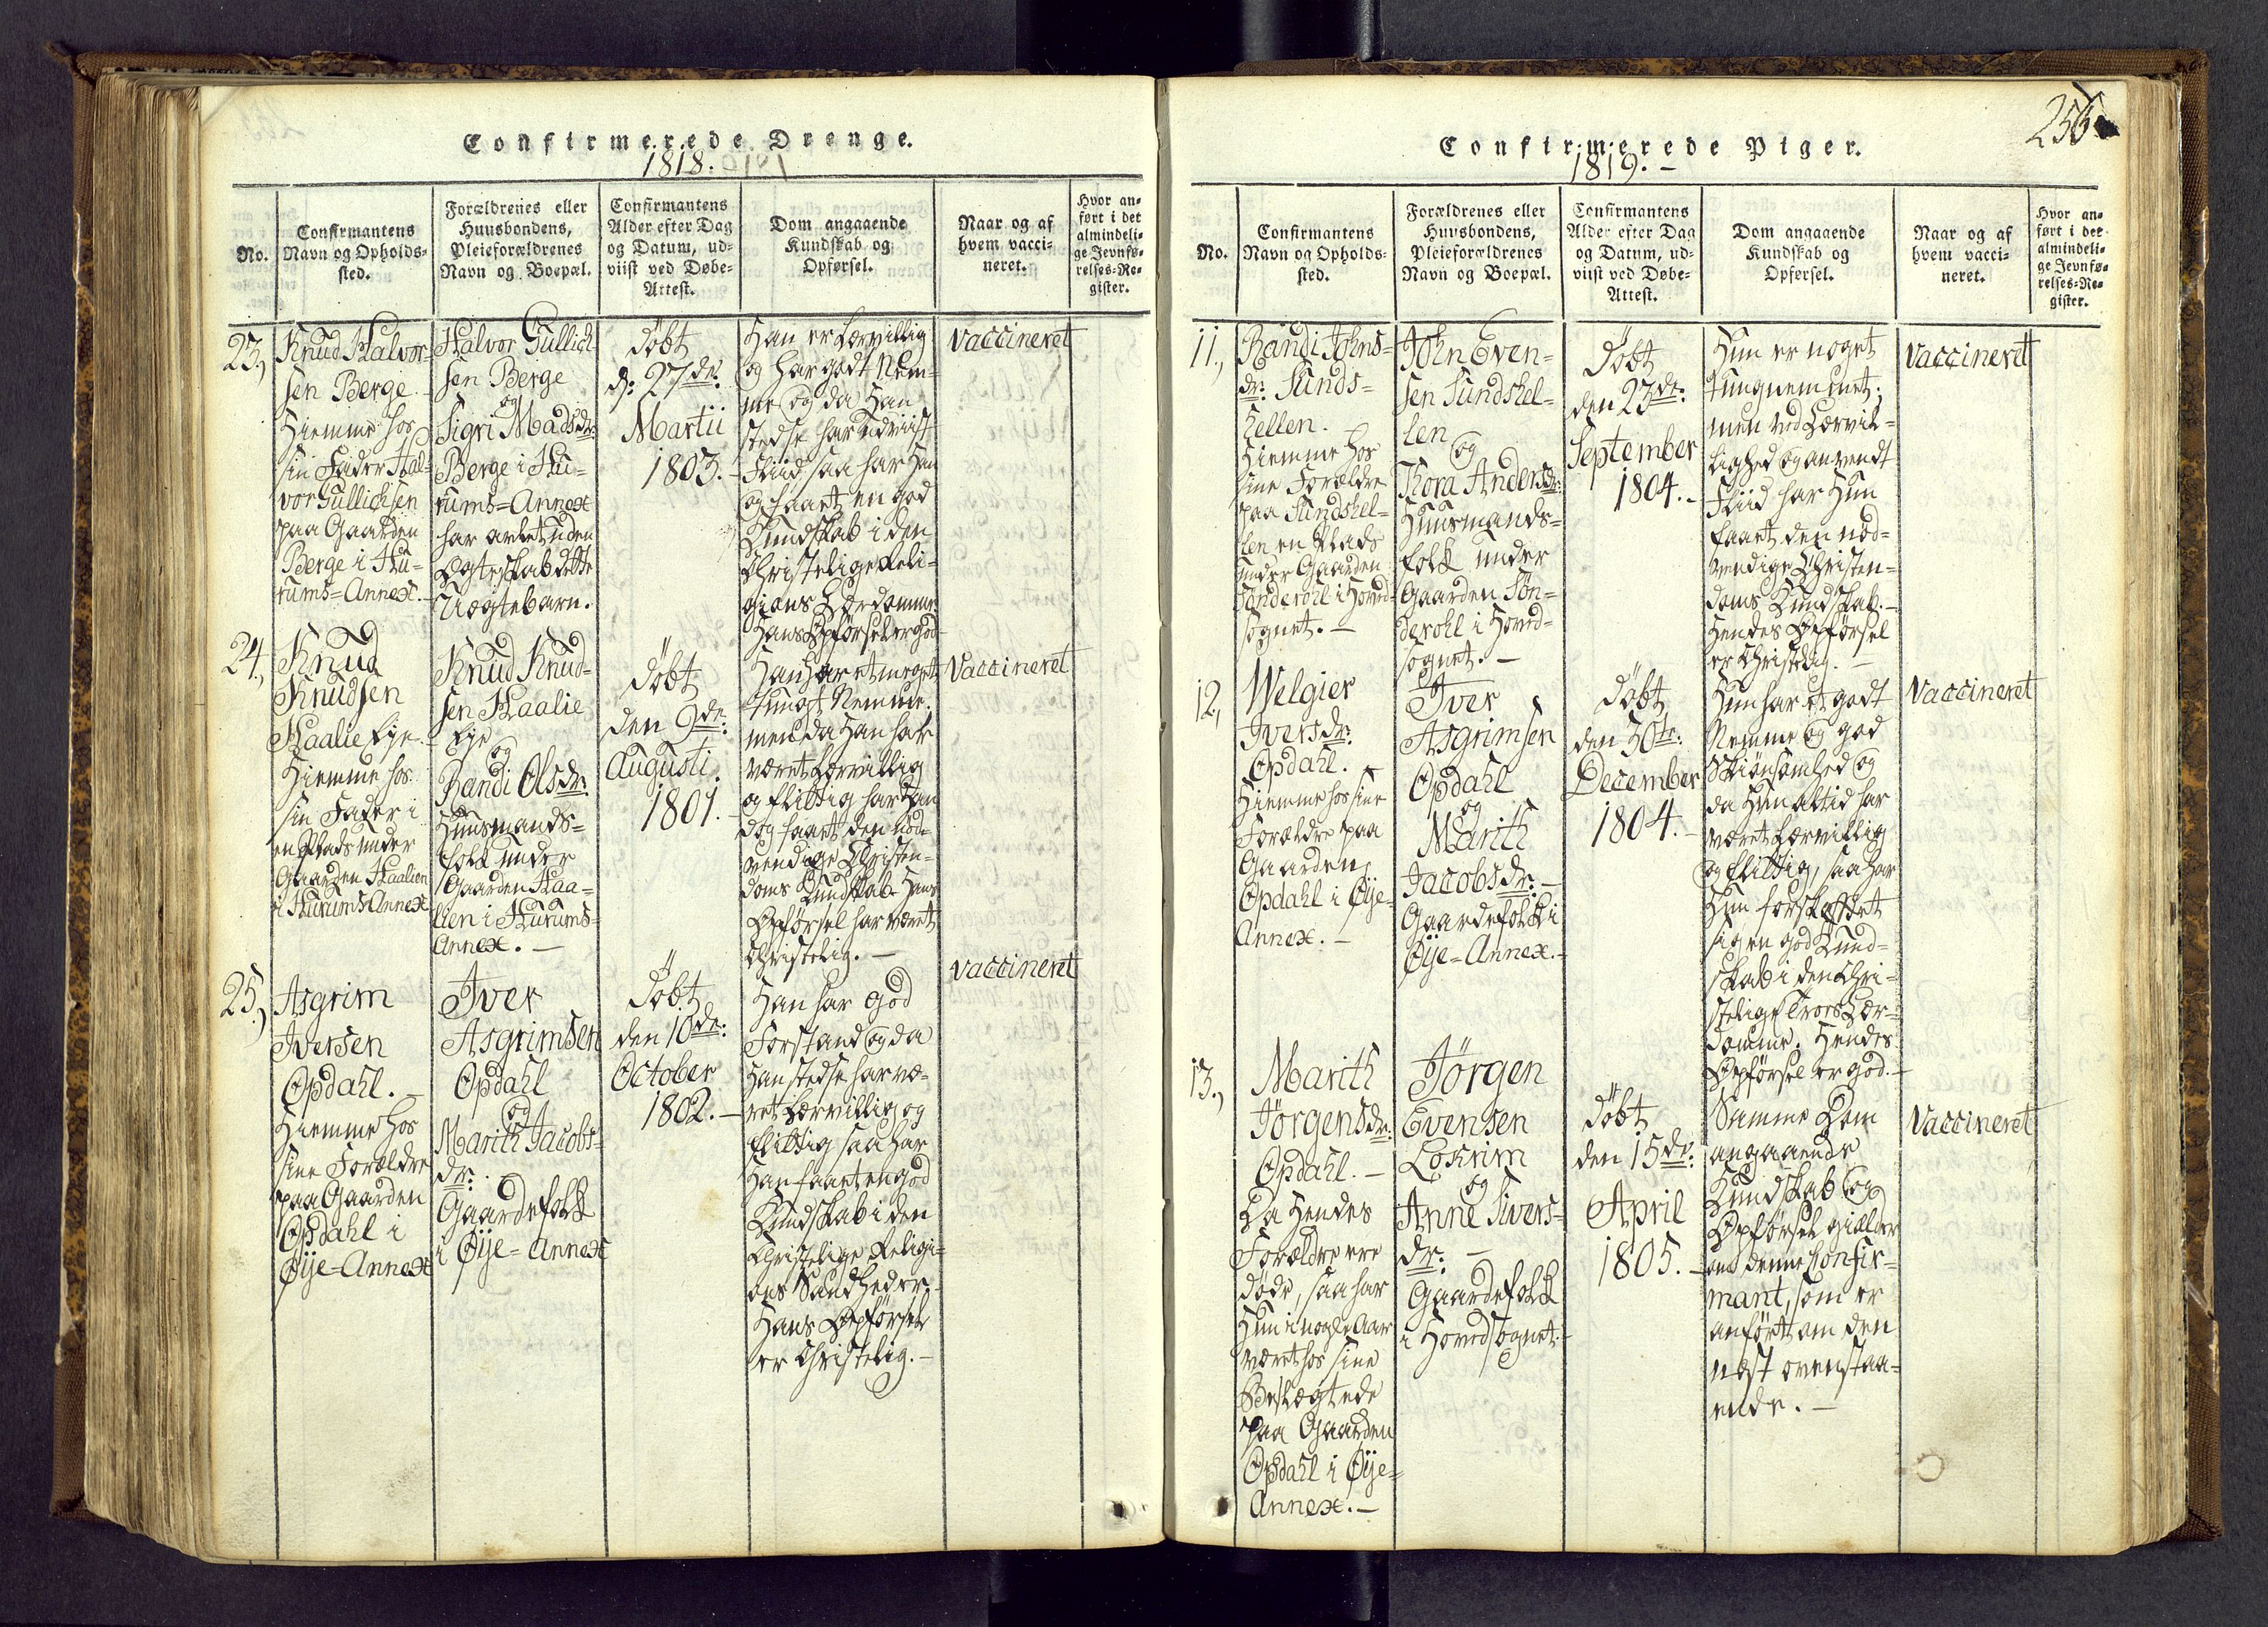 Confirmerede Drenge.
1818.
No.
Confirmantens
Navn og Opholds-
sted.
Forældrenes eller
Huusbondens,
Pleieforældrenes
Navn og Boepæl.
Confirmantens
Alder efter Dag
og Datum, ud-
viist ved Døbe-
Attest.
Dom angaaende
Kundskab og
Opførsel.
Naar og af
hvem vacci-
neret.
Hvor an-
ført i det
almindeli-
ge Jevnfø-
relses-Re-
gister.
23.,
Knud Halvor-
sen Berge.
Hiemme hos
sin Fader Hal-
vor Gullichsen
paa Gaarden
Berge i Hu-
rums-Annex.
Halvor Gullich-
sen Berge
og
Sigri Madsdr:
Berge i Hu-
rums-Annex
har avlet uden
Ægteskab dette
Uægtebarn.
döbt
d: 27de:
Martii
1803.-
Han er Lærvillig
og har godt Nem-
me og da Han
stedse har udviist
Fliid, saa har Han
og faaet en god
Kundskab i den
Christelige Reli-
gions Lærdomme.
Hans Opførsel er god
vaccineret
24.,
Knud
Knudsen
Haalie Eye.
Hiemme hos
sin Fader i
en Plads under
Gaarden Haalien
i HurumsAnnex
Knud Knud-
sen Haalie
Eye
og
Randi Olsdr:
Huusmands-
folk under
Gaarden Haa-
lien i Hurums-
Annex. -
döbt
den 9de:
Augusti
1801.
Han har et meget
tungt Nemme.
men da Han har
været Lærvillig
og flittig har Han
dog faaet den nød-
vendige Christen-
doms Kundskab. Hans
Opførsel har været
Christelig. -
Vaccineret
25.,
Asgrim
Iversen
Opdahl. -
Hiemme hos
sine Forældre
paa Gaarden
Opdahl i
Øije-Annex
Iver
Asgrimsen
Opdahl
og
Marith Jacobs-
dr:
Gaardefolk
i Øije-Annex
döbt
den 10de:
October
1802. -
Han har god
Forstand og da
Han stedse har væ-
ret Lærvillig og
flittig saa har
Han faaet en god
Kundskab i den
Christelige Religi-
ons Sandheder.
Hans Opførsel
er Christelig. -
vaccineret
256
Confirmerede Piger.
1819. -
No.
Confirmantens
Navn og Opholds-
sted.
Forældrenes eller
Huusbondens,
Pleieforældrenes
Navn og Boepæl.
Confirmantens
Alder efter Dag
og Datum, ud-
viist ved Døbe-
Attest.
Dom angaaende
Kundskab og
Opførsel.
Naar og af
hvem vacci-
neret.
Hvor an-
ført i det
almindeli-
ge Jevnfø-
relses-Re-
gister.
11.,
Randi Johns-
dr: Sunds-
hellen.
Hiemme hos
sine Forældre
paa Sundshel-
len en Plads
under Gaarden
Sønderohl i Hoved-
sognet. -
John Even-
sen Sundshel-
len
og
Thora Andersdr:
Huusmands-
folk under
Gaarden Søn-
derohl i Hoved-
sognet. -
döbt
den 23de:
September
1804. -
Hun er noget
tungnemmet;
men ved Lærvil-
lighed og anvendt
Fliid har Hun
faaet den nød-
vendige Christen-
doms Kundskab. -
Hendes Opførsel
er Christelig. -
vaccineret
12.,
Welgier
Iversdr:
Opdahl. -
Hiemme hos sine
Forældre paa
Gaarden
Opdahl i Øije-
Annex. -
Iver
Asgrimsen
Opdahl
og
Marith
Jacobsdr: -
Gaardefolk i
Øije-Annex. -
döbt
den 30te:
December
1804. -
Hun har et godt
Nemme og god
Skiönsomhed og
da Hun altid har
været Lærvillig
og flittig, saa har
Hun forskaffet
sig en god Kund-
skab i den Chri-
stelige Troes Lær-
domme. Hendes
Opførsel er god. -
vaccineret
13.,
Marith
Jörgensdr:
Opdahl. -
Da Hendes
Forældre ere
døde, saa har
Hun i nogle Aar
været hos sine
Beslægtede
paa Gaarden
Opdahl i Øije-
Annex. -
Jörgen
Evensen
Lokrim
og
Anne Sivers-
dr: -
Gaardefolk
i Hovedsognet. -
döbt
den 15de:
April
1805. -
Samme Dom
angaaende
Kundskab og
Opførsel gielder
om denne Confir-
mant, som er
anført om den
nest ovenstaa-
ende. -
Vaccineret